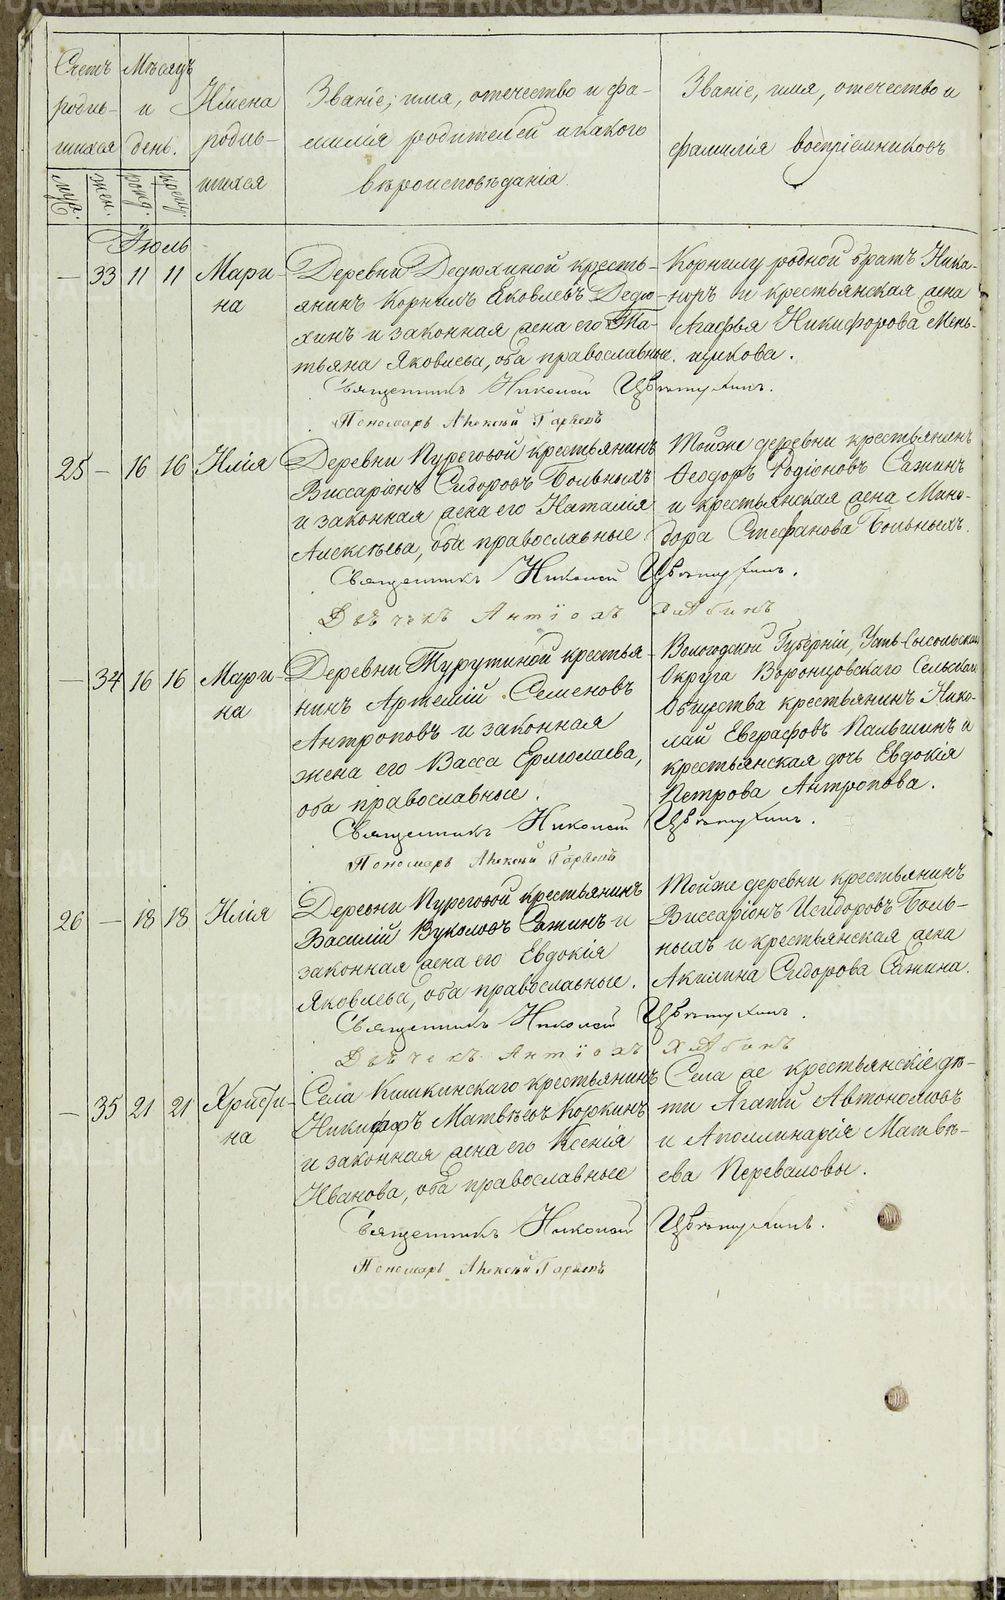 Счетъ родив-
шихся
муж.
жен.
Мѣсяцъ
и
день.
рожд.
крещ.
Имена
родив-
шихся
Званіе, имя, отечество и фа-
милія родителей и какого
вѣроисповѣданія.
Званіе, имя, отечество и
фамилія воспріемниковъ
Іюль
— 33 11 11 Мари-
на
Деревни Дедюхиной кресть-
янинъ Корнилъ Яковлевъ Дедю-
хинъ и законная жена его Та-
тьяна Яковлева, оба православные.
Корнилу родной братъ Ника-
норъ и крестьянская жена
Агафья Никифорова Мень-
щикова.
Священникъ Николай Цвѣтухинъ.
Пономарь Алексѣй
25 — 16 16 Илія
Деревни Пуреговой крестьянинъ
Виссаріонъ Сидоровъ Больныхъ
и законная жена его Наталія
Алексѣева, оба православные
Тойже деревни крестьянинъ
Ѳеодоръ Родіоновъ Сажинъ
и крестьянская жена Мино-
дора Стефанова Больныхъ.
Священникъ Николай Цвѣтухинъ.
Дьячекъ Антіохъ Хлябинъ
— 34 16 16 Мари-
на
Деревни Турутиной крестья-
нинъ Артемій Семеновъ
Антроповъ и законная
жена его Васса Ермолаева,
оба православные.
Вологодской Губерніи, Усть-Сысольскаго
Округа Воронцовскаго Сельскаго
Общества крестьянинъ Нико-
лай Евграфовъ Пальшинъ и
крестьянская дочь Евдокія
Петрова Антропова.
Священникъ Николай Цвѣтухинъ.
Пономарь Алексѣй
26 — 18 18 Илія
Деревни Пуреговой крестьянинъ
Василій Вуколовъ Сажинъ и
законная жена его Евдокія
Яковлева, оба православные.
Тойже деревни крестьянинъ
Виссаріонъ Исидоровъ Боль-
ныхъ и крестьянская жена
Акилина Сидорова Сажина.
Священникъ Николай Цвѣтухинъ.
Дьячекъ Антіохъ Хлябинъ
— 35 21 21 Христи-
на
Села Кишкинскаго крестьянинъ
Никифоръ Матвѣевъ Коркинъ
и законная жена его Ксенія
Иванова, оба православные
Села же крестьянскіе дѣ-
ти Агапій Автономовъ
и Аполлинарія Матвѣ-
ева Переваловы.
Священникъ Николай Цвѣтухинъ.
Пономарь Алексѣй
METRIKI.GASO-URAL.RU